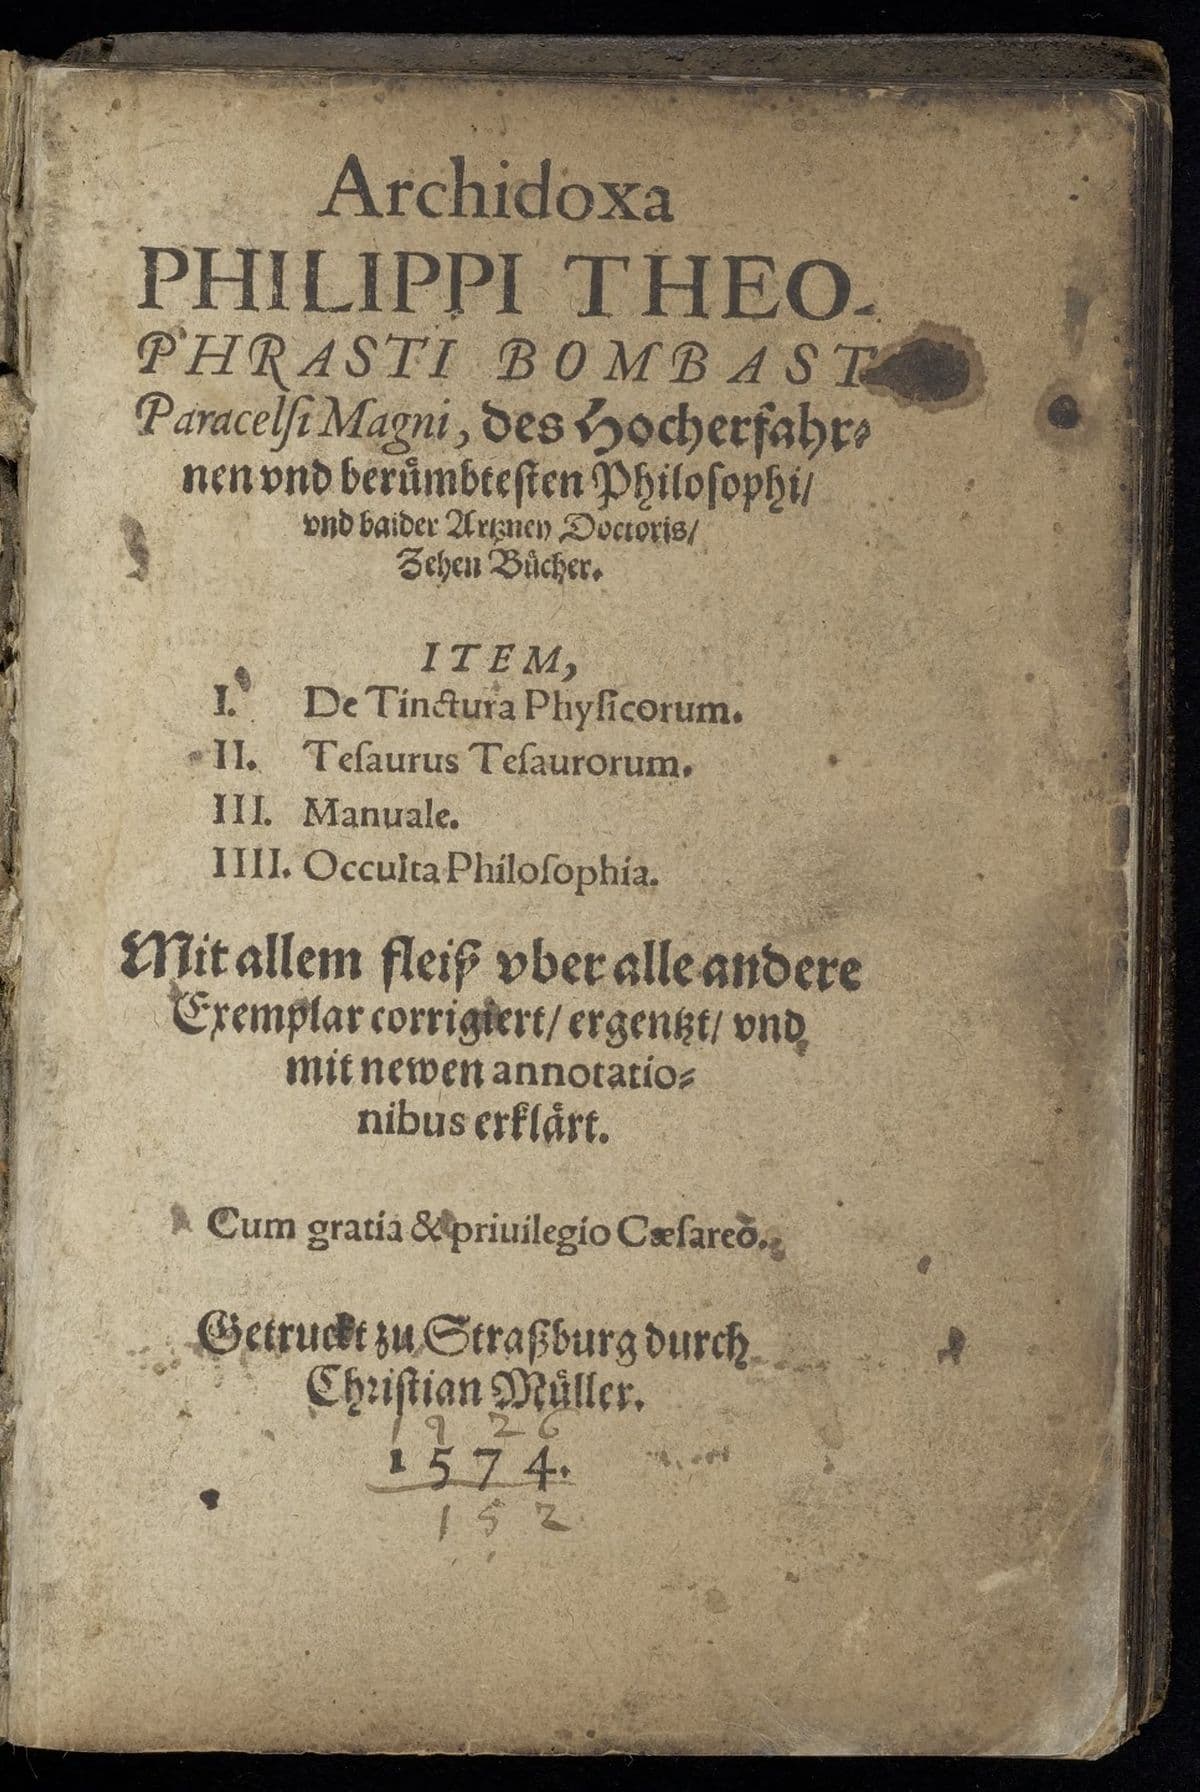 Archidoxa
PHILIPPI THEO-
PHRASTI BOMBAST
Paracelſi Magni, des Hocherfahr⸗
nen vnd beruͤmbteſten Philoſophi/
vnd baider Artzney Doctoris/
Zehen Buͤcher.
ITEM,
I. De Tinctura Phyſicorum.
II. Teſaurus Teſaurorum.
III. Manuale.
IIII. Occulta Philoſophia.
Mit allem fleiß vber alle andere
Exemplar corrigiert/ ergentzt/ vnd
mit newen annotatio⸗
nibus erklaͤrt.
Cum gratia & priuilegio Cæſareo.
Getruckt zu Straßburg durch
Chriſtian Muͤller.
1926
1574.
152